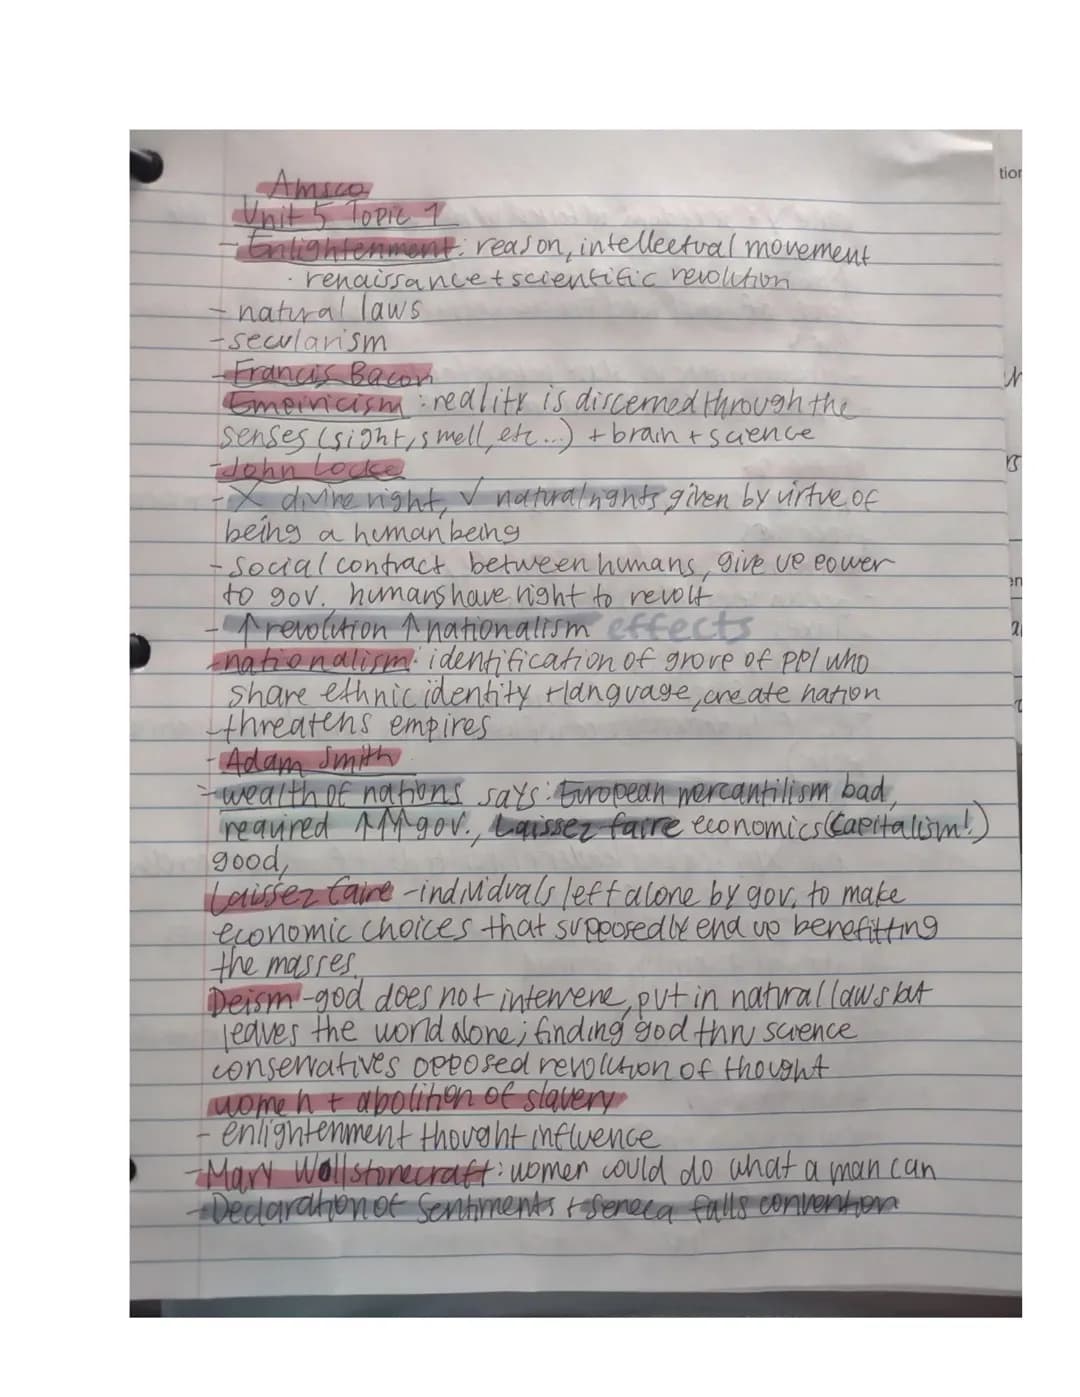 Amsco
Unit 5 Topic 1
- Enlightenment: reason, intellectual movement
· renaissance + scientific revolution
- natural laws
- secularism
- Francis Bacon
Empiricism: reality is discerned through the
senses (sight, smell, etc...) + brain + science
- John Locke
- X divine right, ✓ natural rights given by virtue of
being a human being
- social contract between humans, give up power
to gov. humans have right to revolt
- ↑ revolution ↑ nationalism effects
- nationalism: identification of group of ppl who
share ethnic identity + language, create nation
- threatens empires
- Adam Smith
- wealth of nations says: European mercantilism bad,
required ↑↑↑ gov., Laissez faire economics (Capitalism!)
good,
Laissez faire - individuals left alone by gov, to make
economic choices that supposedly end up benefitting
the masses.
Deism - god does not intervene, put in natural laws but
leaves the world alone; finding god thru science
conservatives opposed revolution of thought
women + abolition of slavery
- enlightenment thought influence
- Mary Wollstonecraft: women could do what a man can
- Declaration of Sentiments + Seneca falls convention
tion